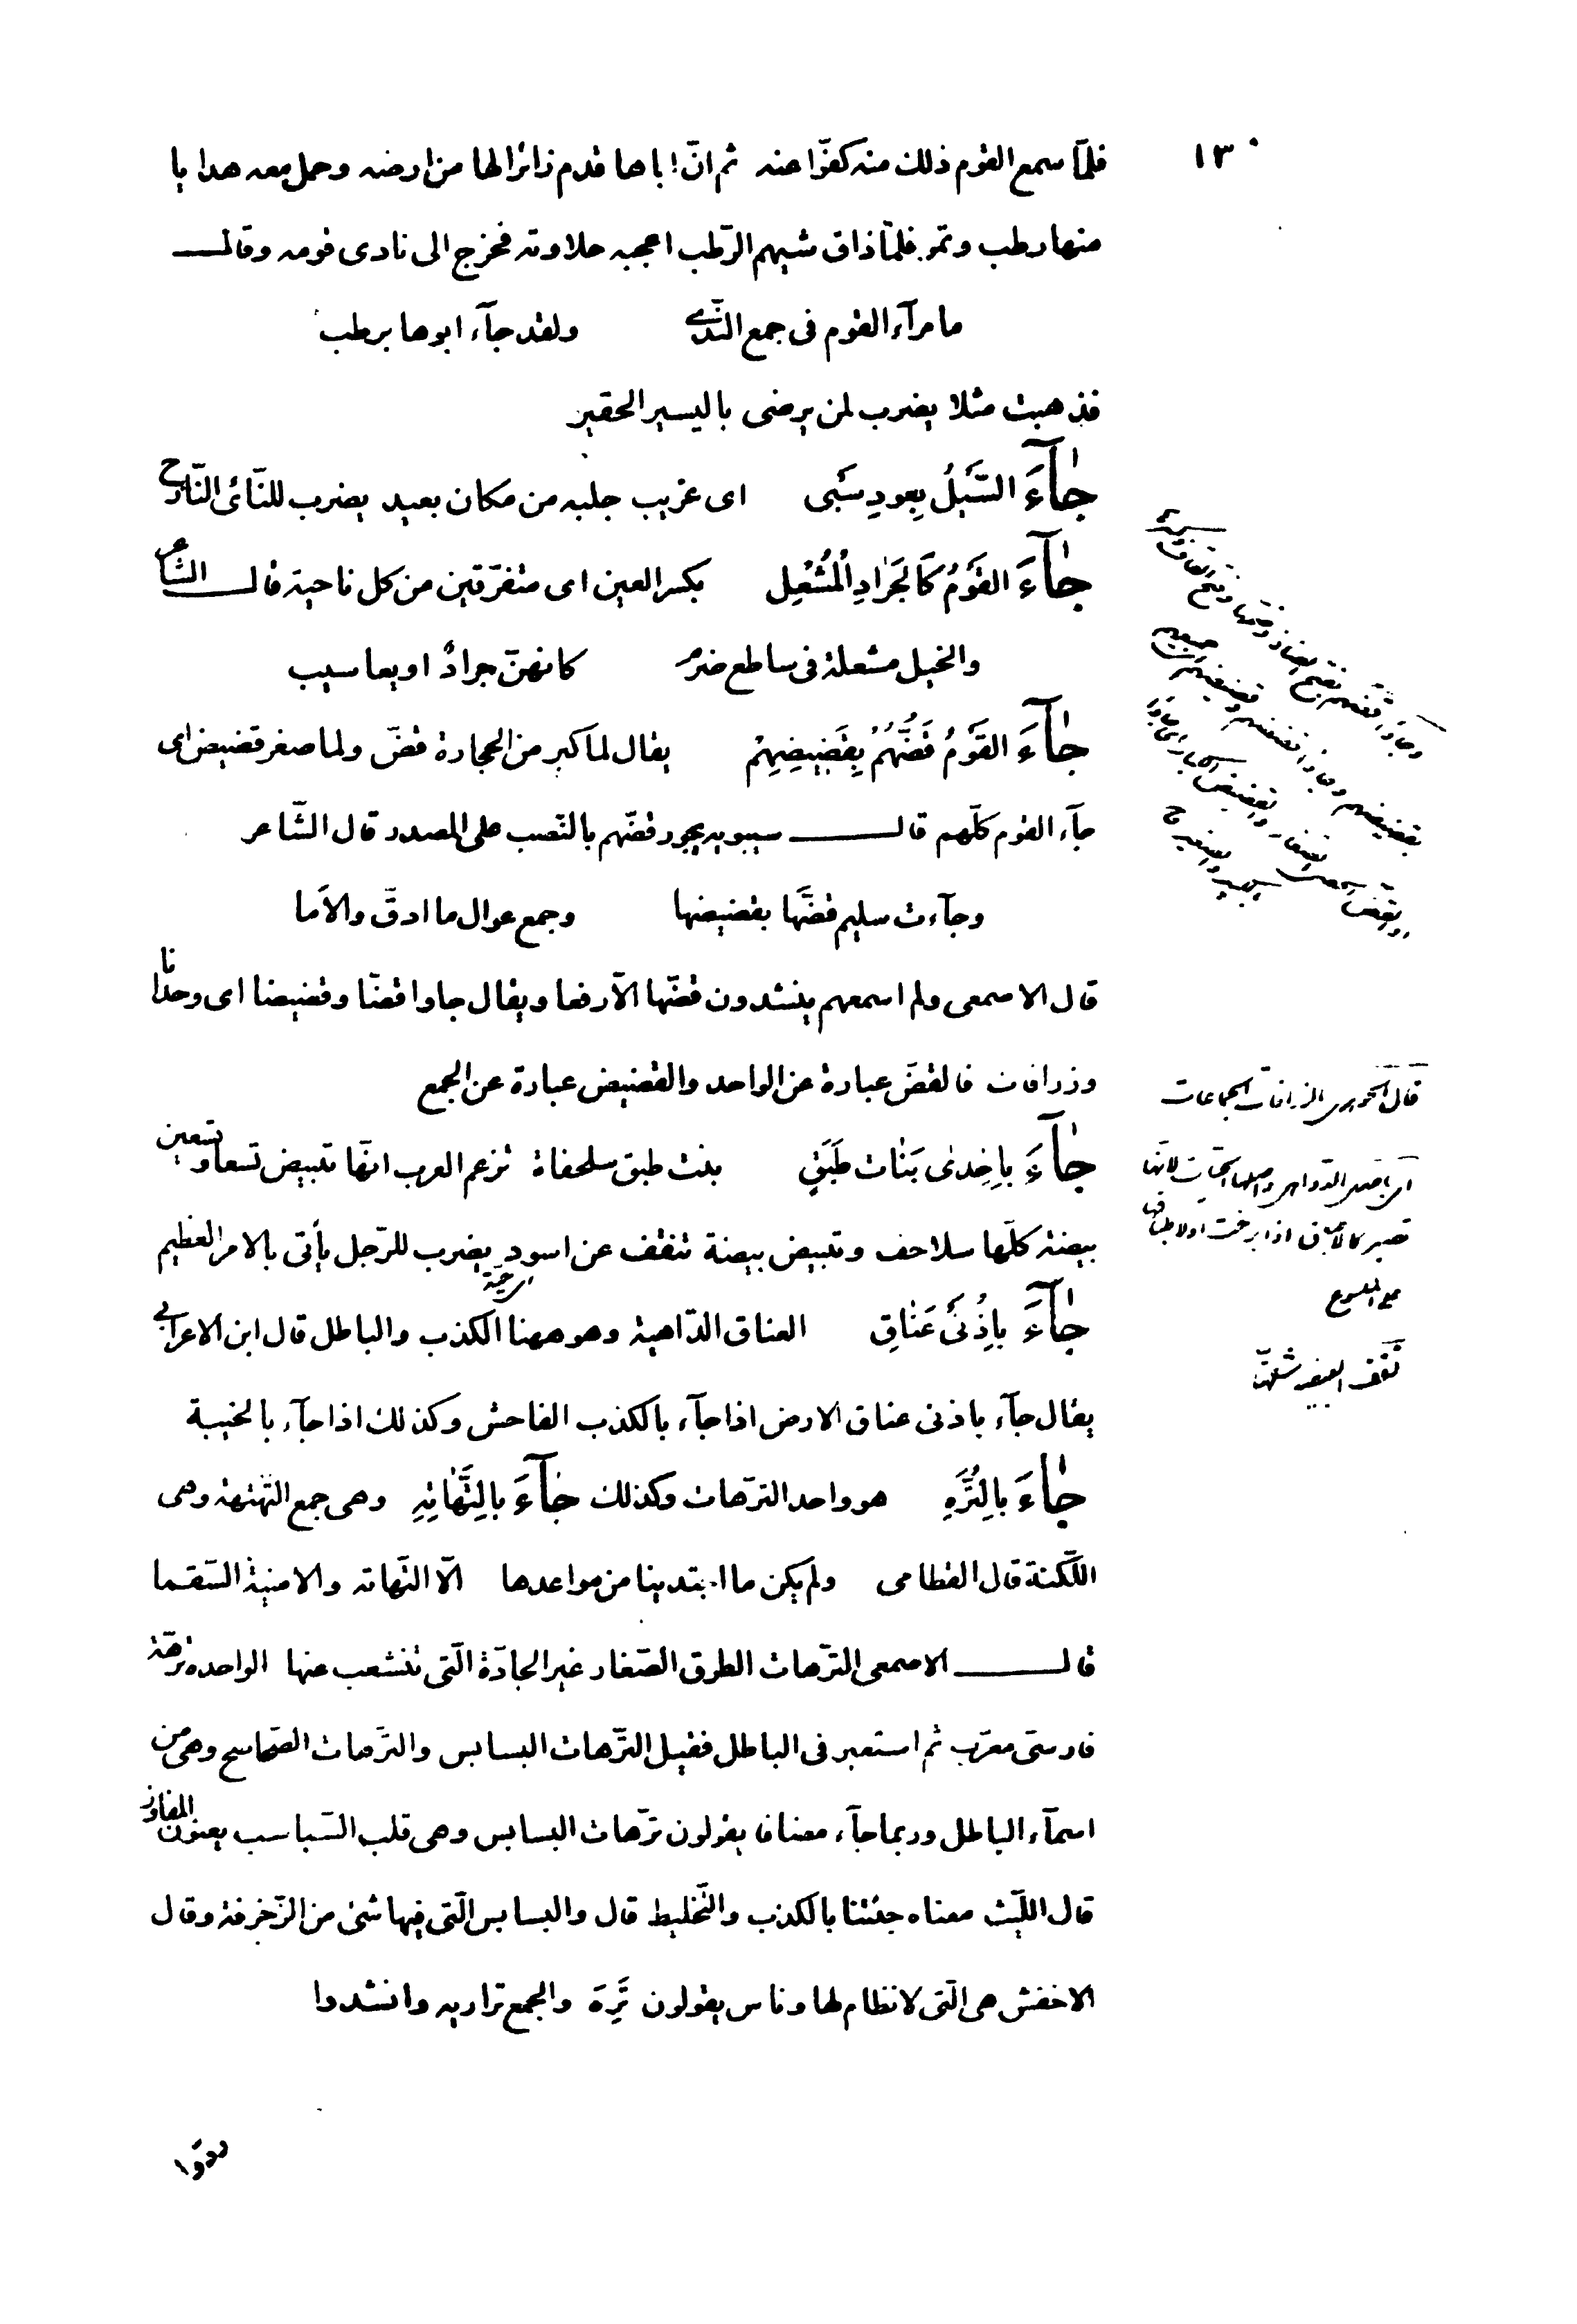 ١٣٠
فلمّا سمع القوم ذلك منه كفّوا عنه ثم انّ اباها قدم زائرا لها من ارضه وحمل معه هدايا
منها رطب وتمر فلمّا ذاق شيهم الرّطب اعجبه حلاوته فخرج الى نادى قومه وقال
ما مرآء القوم فى جمع النّدى ولقد جآء ابوها برطب
فذهبت مثلا يضرب لمن يرضى باليسير الحقير
جَآءَ السَّيلُ بِعودٍ سَبَى اى غريب جلبه من مكان بعيد يضرب للنّائى النّازح
جَآءَ القَوْمُ كَالجَرَادِ المُشْعِل بكسر العين اى متفرّقين من كل ناحية قال الشاعر
والخيل مشعلة فى ساطع ضرم كانهنّ جرادٌ او يعاسيب
جَآءَ القَوْمُ قَضُّهُمْ بِقَضِيضِهِمْ يقال لما كبر من الحجارة قضّ ولما صغر قضيض اى
جآء القوم كلّهم قال سيبويه يجوز قضّهم بالنّصب على المصدر قال الشّاعر
وجآءت سليم قضَّها بقضيضها وجمع عوال ما ادقَّ والأما
قال الاصمعى ولم اسمعهم ينشدون قضّها الاّ رفعا ويقال جاوا قضّا وقضيضا اى وحدانا
وزرافات فالقضّ عبارة عن الواحد والقضيض عبارة عن الجمع
جَآءَ بِاِحْدىٰ بَنَات طَبَقٍ بنت طبق سلحفاة تزعم العرب انّها تبيض تسعا وتسعين
بيضة كلّها سلاحف وتبيض بيضة تنقف عن اسود يضرب للرّجل يأتى بالامر العظيم
اى حيّة
جَآءَ بِاُذُنَىْ عَنَاقِ العناق الدّاهية وهو ههنا الكذب والباطل قال ابن الاعرابى
يقال جآء باذنى عناق الارض اذا جآء بالكذب الفاحش وكذلك اذا جآء بالخيبة
جَآءَ بالتُّرَّهِ هو واحد الترّهات وكذلك جَآءَ بالتَّهَاتِهِ وهى جمع التّهتهة وهى
اللّكنة قال القطامى ولم يكن ما ابتدينا من مواعدها الاّ التّهاته والامنية السّقما
قال الاصمعى الترّهات الطرق الصّغار غير الجادّة الّتى تنشعب عنها الواحدة ترّهة
فارسىّ معرّب ثم استعير فى الباطل فقيل التّرّهات البسابس والترّهات الصّحاصح وهى من
اسمآء الباطل وربما جآء مضافا يقولون ترّهات البسابس وهى قلب السّباسب يعنون المفاوز
قال اللّيث معناه جئتنا بالكذب والتّخليط قال والبسابس الّتى فيها شئ من الزّخرفة وقال
الاخفش هى الّتى لا نظام لها وناس يقولون تُرَّه والجمع تراريه وانشدوا
ردّوا
قال الجوهرى الزرافات الجماعات
تصير كالاطباق
على الملسوع
نقف البيضة شقّها